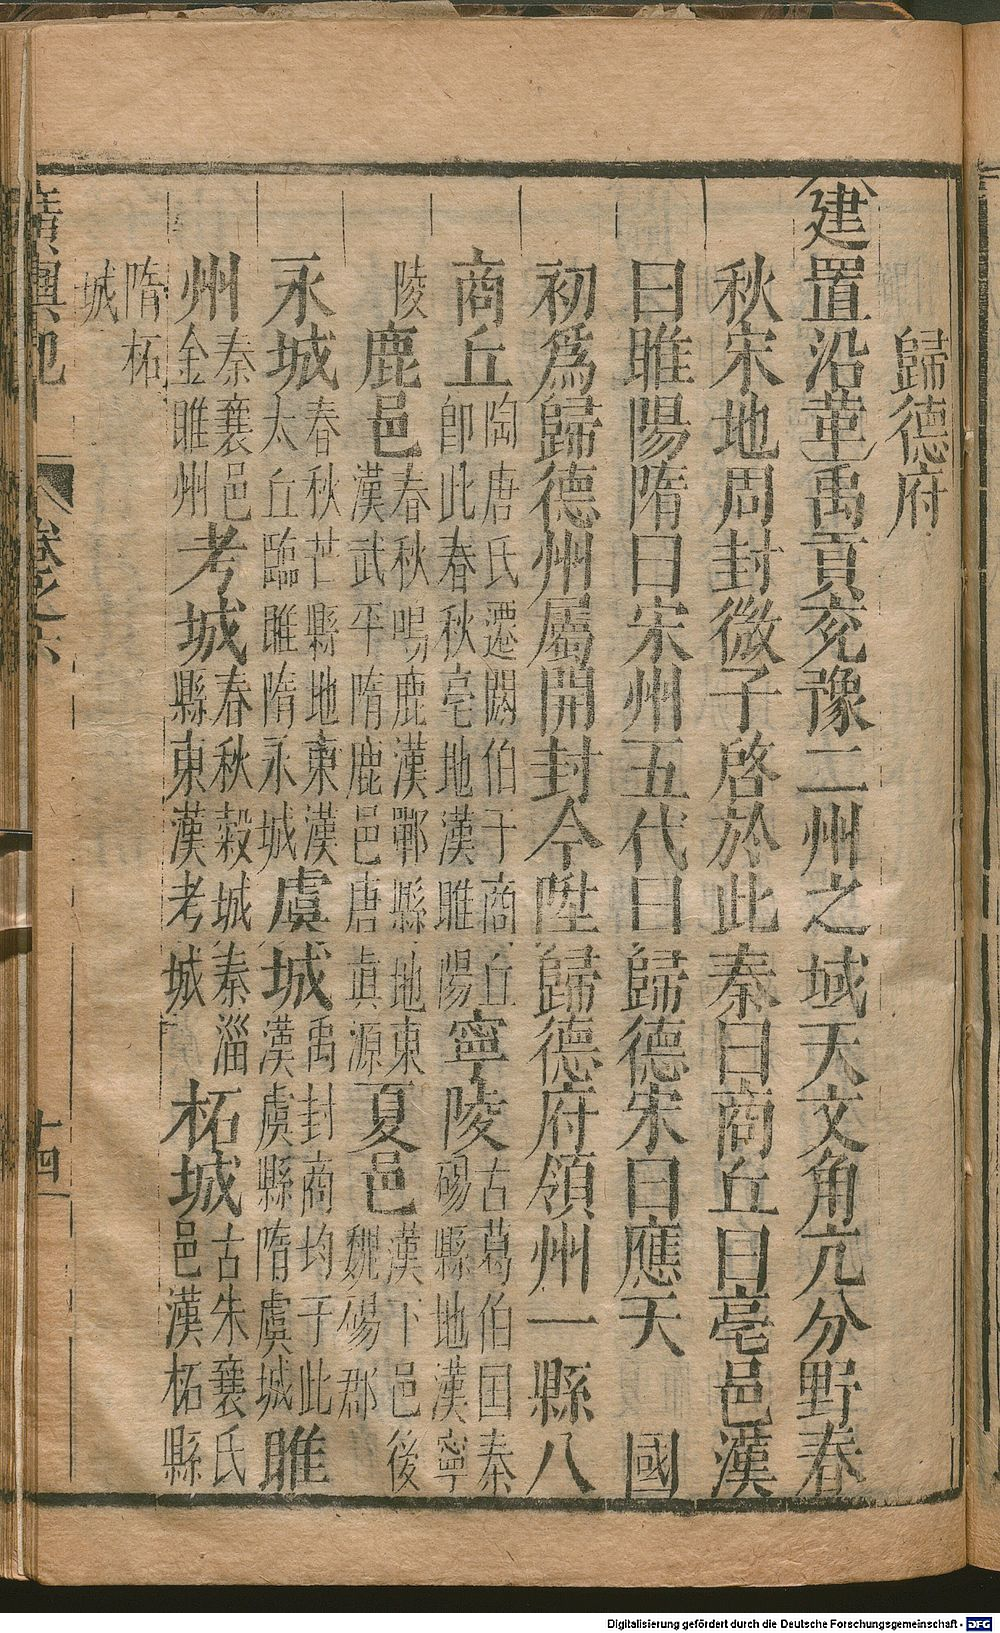 歸德府
建置沿革禹貢兖豫二州之域天文角亢分野春
秋宋地周封微子啓於此秦曰商丘曰亳邑漢
曰睢陽隋曰宋州五代曰歸德宋曰應天 國
初爲歸德州屬開封今陞歸德府領州一縣八
商丘陶唐氏遷閼伯于商丘卽此春秋亳地漢睢陽寧陵古葛伯国秦碭縣地漢寧
陵鹿邑春秋鳴鹿漢鄲縣地東漢武平隋鹿邑唐眞源夏邑漢下邑後魏碭郡
永城春秋芒縣地東漢太丘臨睢隋永城虞城禹封商均于此漢虞縣隋虞城睢
州秦襄邑金睢州考城春秋榖城秦淄縣東漢考城柘城古朱襄氏邑漢柘縣
隋柘城
廣輿記 卷之六 十四
Digitalisierung gefördert durch die Deutsche Forschungsgemeinschaft - DFG